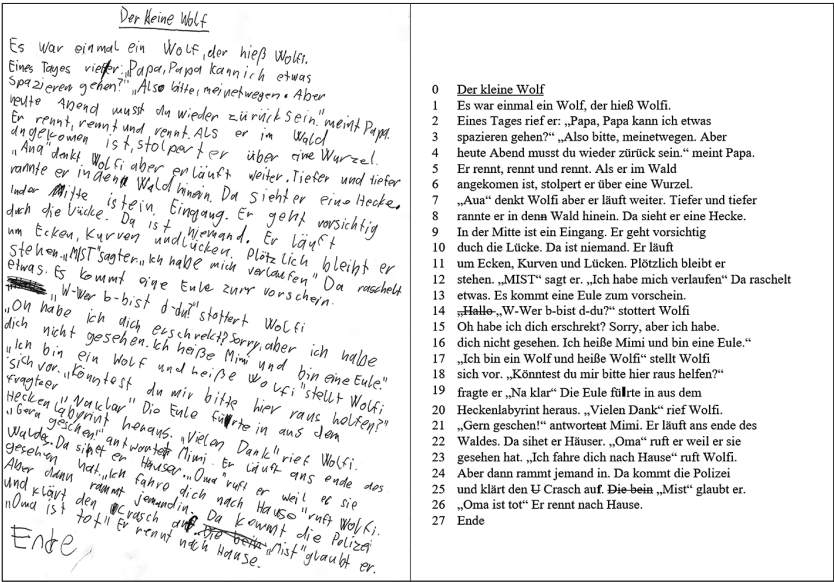 Der kleine Wolf
Es war einmal ein Wolf, der hieß Wolfi.
Eines Tages rief er: „Papa, Papa kann ich etwas
spazieren gehen?" „Also bitte, meinetwegen. Aber
heute Abend musst du wieder zürück sein." meint Papa.
Er rennt, rennt und rennt. Als er im Wald
angekomen ist, stolpert er über eine Wurzel.
„Aua" denkt Wolfi aber er läuft weiter. Tiefer und tiefer
rannte er in denn Wald hinein. Da sieht er eine Hecke.
In der Mitte ist ein Eingang. Er geht vorsichtig
duch die Lücke. Da ist niemand. Er läuft
um Ecken, Kurven und Lücken. Plötzlich bleibt er
stehen. „MIST" sagt er. „Ich habe mich verlaufen" Da raschelt
etwas. Es kommt eine Eule zum vorschein.
„W-Wer b-bist d-du?" stottert Wolfi
„Oh habe ich dich erschrekt? Sorry, aber ich habe
dich nicht gesehen. Ich heiße Mimi und bin eine Eule."
„Ich bin ein Wolf und heiße Wolfi" stellt Wolfi
sich vor. „Könntest du mir bitte hier raus helfen?"
fragt er „Na klar" Die Eule fürte in aus dem
Heckenlabyrint heraus. „Vielen Dank" rief Wolfi.
„Gern geschen!" antwortet Mimi. Er läuft ans ende des
Waldes. Da sihet er Häuser. „Oma" ruft er weil er sie
gesehen hat. „Ich fahre dich nach Hause" ruft Wolfi.
Aber dann rammt jemand in. Da kommt die Polizei
und klärt den Crasch auf. Die bein „Mist" glaubt er.
„Oma ist tot" Er rennt nach Hause.
Ende
0 Der kleine Wolf
1 Es war einmal ein Wolf, der hieß Wolfi.
2 Eines Tages rief er: „Papa, Papa kann ich etwas
3 spazieren gehen?" „Also bitte, meinetwegen. Aber
4 heute Abend musst du wieder zürück sein." meint Papa.
5 Er rennt, rennt und rennt. Als er im Wald
6 angekomen ist, stolpert er über eine Wurzel.
7 „Aua" denkt Wolfi aber er läuft weiter. Tiefer und tiefer
8 rannte er in denn Wald hinein. Da sieht er eine Hecke.
9 In der Mitte ist ein Eingang. Er geht vorsichtig
10 duch die Lücke. Da ist niemand. Er läuft
11 um Ecken, Kurven und Lücken. Plötzlich bleibt er
12 stehen. „MIST" sagt er. „Ich habe mich verlaufen" Da raschelt
13 etwas. Es kommt eine Eule zum vorschein.
14 „Hallo „W-Wer b-bist d-du?" stottert Wolfi
15 Oh habe ich dich erschrekt? Sorry, aber ich habe.
16 dich nicht gesehen. Ich heiße Mimi und bin eine Eule."
17 „Ich bin ein Wolf und heiße Wolfi" stellt Wolfi
18 sich vor. „Könntest du mir bitte hier raus helfen?"
19 fragte er „Na klar" Die Eule fürte in aus dem
20 Heckenlabyrint heraus. „Vielen Dank" rief Wolfi.
21 „Gern geschen!" antwortent Mimi. Er läuft ans ende des
22 Waldes. Da sihet er Häuser. „Oma" ruft er weil er sie
23 gesehen hat. „Ich fahre dich nach Hause" ruft Wolfi.
24 Aber dann rammt jemand in. Da kommt die Polizei
25 und klärt den U Crasch auf. Die bein „Mist" glaubt er.
26 „Oma ist tot" Er rennt nach Hause.
27 Ende